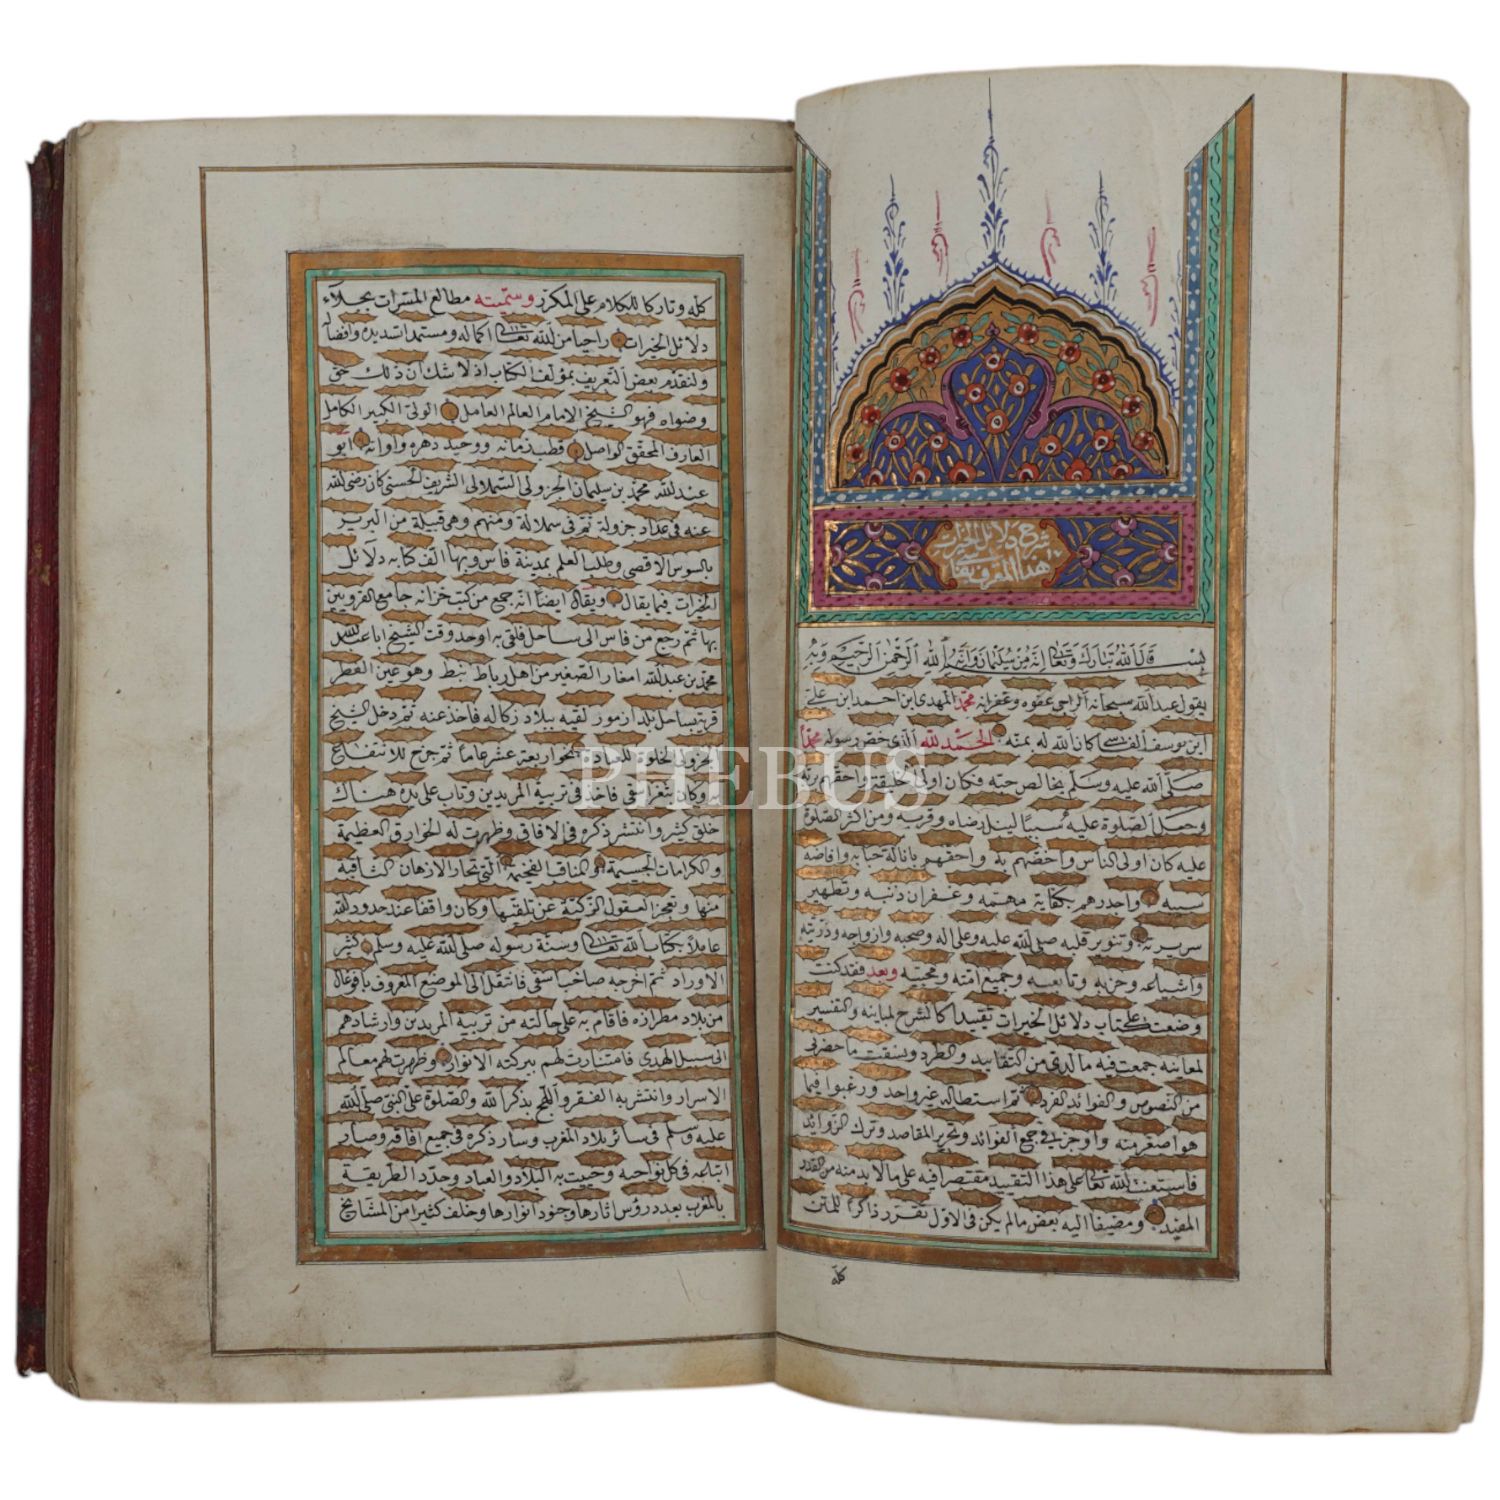 شرح دلائل الخيرات
هذا
بسم قال الله تبارك وتعالى انه من سليمان وانه الله الرحمن الرحيم وبه
يقول عبد الله سبحانه الراجي عفوه وغفرانه محمد المهدي بن احمد ابن علي
ابن يوسف الفاسي كان الله له بمنه الحمد لله الذي خص رسوله محمدا
صلى الله عليه وسلم بخالص محبته فكان اولى الخليقة واحقهم
وجعل الصلوة عليه سببا لنيل رضاه وقربه ومن اكثر الصلوة
عليه كان اولى الناس واخصهم به واحقهم بانالة وافاضه
سيبه واجدرهم بكفاية مهمته وغفران ذنبه وتطهير
سريرته وتنوير قلبه صلى الله عليه وعلى اله وصحبه وازواجه وذريته
واشياعه وحزبه وتابعيه وجميع امته ومحبيه وبعد فقد كنت
وضعت على كتاب دلائل الخيرات تقييدا كالشرح لمبانيه والتفسير
لمعانيه جمعت فيه ما لدي من التقاييد والطرر وسقت ما حضرني
من النصوص والفوائد الغرر ثم استطاله غير واحد ورغبوا فيما
هو اصغر منه واوجز في جمع الفوائد وتحرير المقاصد وترك الزوائد
فاستعنت الله تعالى على هذا التقييد مقتصرا فيه على ما لا بد منه من القدر
المفيد ومضيفا اليه بعض ما لم يكن في الاول تقرر ذاكرا للمتن
كله
كله وتاركا للكلام على المكرر وسميته مطالع المسرات بجلاء
دلائل الخيرات راجيا من الله تعالى اكماله ومستمدا تسديده وافضاله
ولنقدم بعض التعريف بمؤلف الكتاب اذ لا شك ان ذلك حق
وصواه فهو الشيخ الامام العالم العامل الولي الكبير الكامل
العارف المحقق الواصل قطب زمانه ووحيد دهره واوانه ابو
عبد الله محمد بن سليمان الجزولي السملالي الشريف الحسني كان رضي الله
عنه في عداد جزولة ثم في سملالة ومنهم وهو قبيلة من البربر
بالسوس الاقصى وطلب العلم بمدينة فاس وبها الف كتابه دلائل
الخيرات فيما يقال ويقال ايضا انه جمع من كتب خزانة جامع القرويين
بها ثم رجع من فاس الى ساحل فلقي به اوحد وقته الشيخ ابا عبد الله
محمد بن عبد الله امغار الصغير من اهل رباط تيط وهو عين الفطر
قرية بساحل بلد ازمور لقيه ببلاد دكالة فاخذ عنه ثم دخل الشيخ
الجزولي الخلوة للعبادة نحو اربعة عشر عاما ثم خرج للانتفاع
به وكان بثغر اسفي فاخذ في تربية المريدين وتاب على يده هناك
خلق كثير وانتشر ذكره في الافاق وظهرت له الخوارق العظيمة
والكرامات الجسيمة والمناقب الفخيمة التي تحار الاذهان الثاقبة
منها وتعجز العقول الزكية عن تلقتها وكان واقفا عند حدود الله
عاملا بكتاب الله تعالى وسنة رسوله صلى الله عليه وسلم كثير
الاوراد ثم اخرجه صاحب اسفي فانتقل الى الموضع المعروف بافوغال
من بلاد مطرازه فاقام به على حالته من تربية المريدين وارشادهم
الى سبيل الهدى فامتنارت لهم ببركته الانوار وظهرت لهم معالم
الاسرار وانتشر به الفقر واللهج بذكر الله والصلوة على النبي صلى الله
عليه وسلم في سائر بلاد المغرب وسار ذكره في جميع افاقه وصار
اتباعه في كل نواحيه وحييت به البلاد والعباد وجدد الطريقة
بالمغرب بعد دروس اثارها وخمود انوارها وخلف كثيرا من المشائخ
PHEBUS